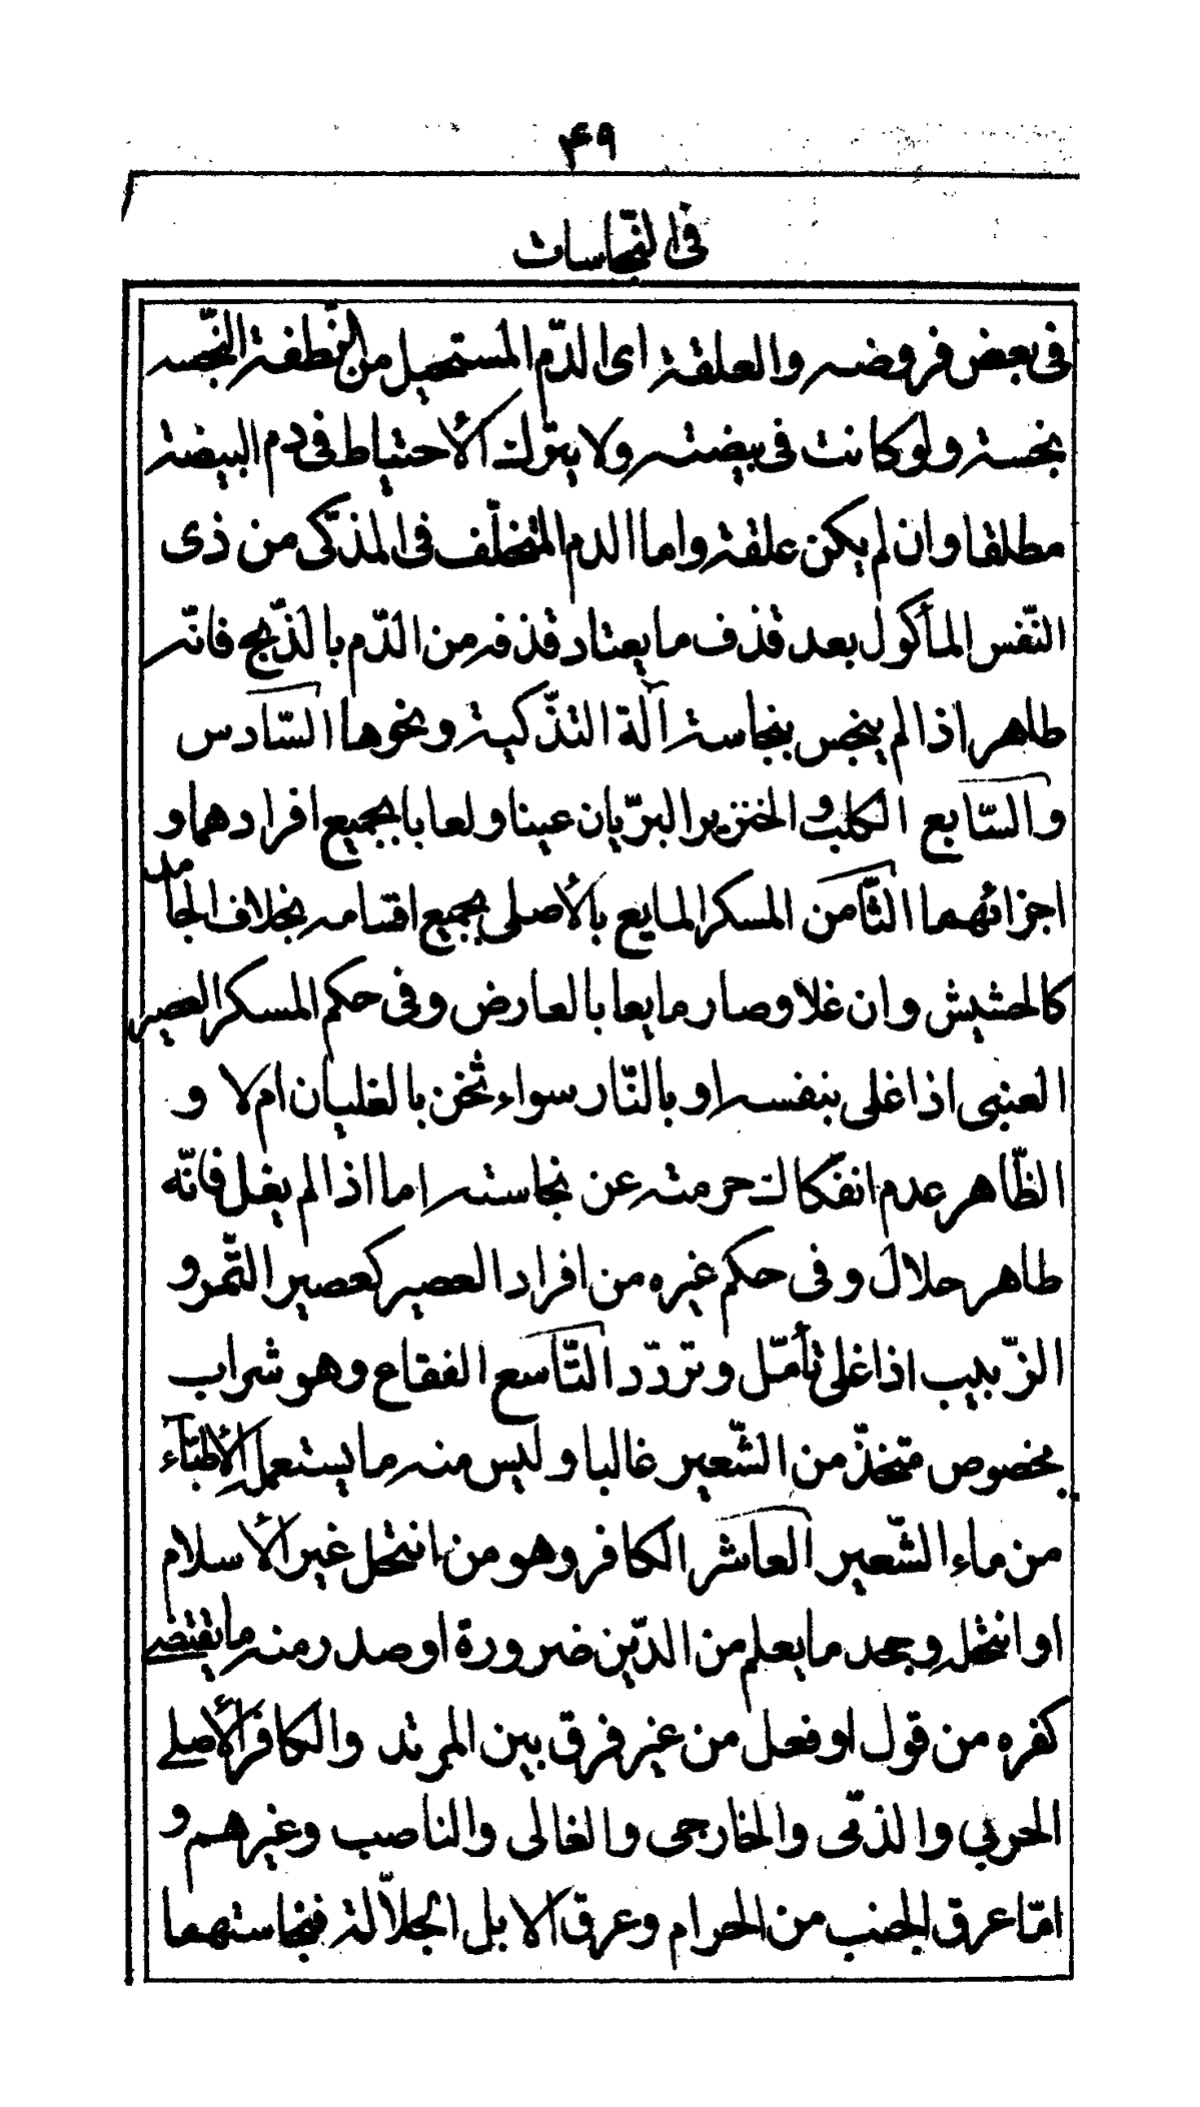 ۴۹
فى النّجاسات
فى بعض فروضه والعلقة اى الدّم المستحيل من النّطفة النّجسه
نجسة ولو كانت فى بيضته ولا يترك الأحتياط فى دم البيضة
مطلقا وان لم يكن علقة واما الدم المتخلّف فى المذكّى من ذى
النّفس المأكول بعد قذف ما يعتاد قذفه من الدّم بالذّبح فانّه
طاهر اذا لم ينجس بنجاسة آلة التذّكية ونحوها السّادس
والسّابع الكلب والخنزير البرّيان عينا ولعابا بجميع افرادهما و
اجزائهما الثّامن المسكر المايع بالأصلى بجميع اقسامه بخلاف الجامد
كالحشيش وان غلا وصار مايعا بالعارض وفى حكم المسكر العصير
العنبى اذا غلى بنفسه او بالنّار سواء ثخن بالغليان ام لا و
الظّاهر عدم انفكاك حرمته عن نجاسته اما اذا لم يغل فانّه
طاهر حلال وفى حكم غيره من افراد العصير كعصير التّمر و
الزّبيب اذا غلى تأمّل وتردّد التّاسع الفقاع وهو شراب
مخصوص متّخذ من الشّعير غالبا وليس منه ما يستعمله الأطبّآء
من ماء الشّعير العاشر الكافر وهو من انتحل غير الأسلام
او انتحله وجحد ما يعلم من الدّين ضرورة او صدر منه ما يقتضے
كفره من قول او فعل من غير فرق بين المرتد والكافر الأصلے
الحربي والذمّى والخارجى والغالى والناصب وغيرهم و
امّا عرق الجنب من الحرام وعرق الابل الجلاّلة فنجاستهما